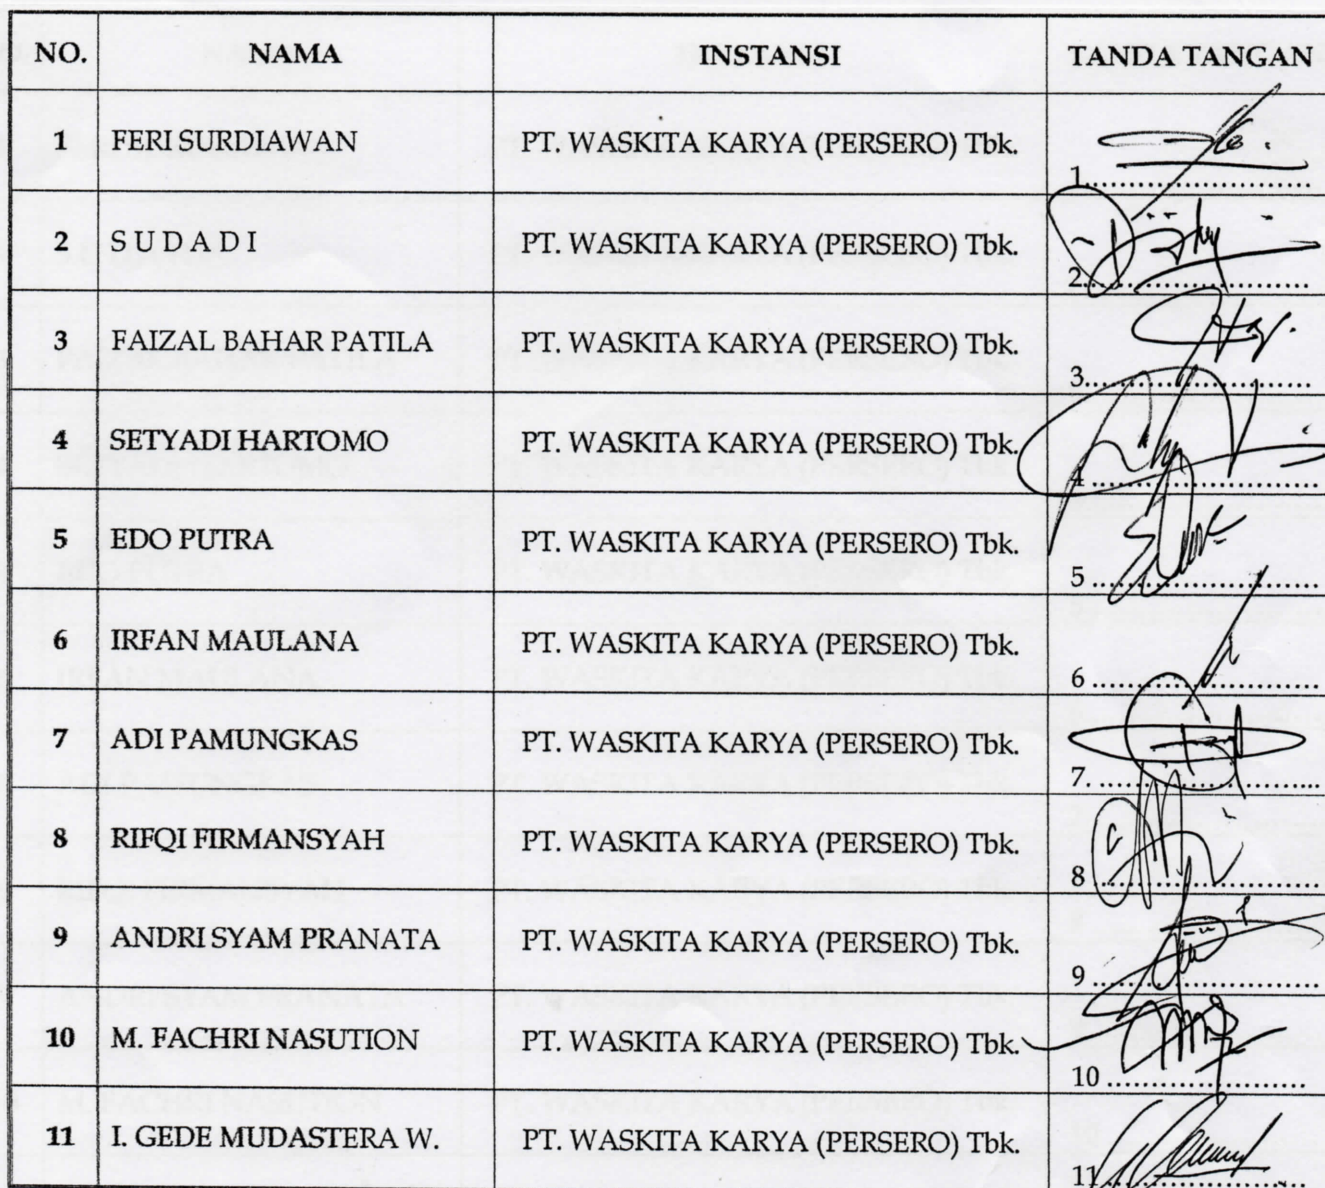 NO. NAMA INSTANSI TANDA TANGAN
1 FERI SURDIAWAN PT. WASKITA KARYA (PERSERO) Tbk. 1
2 S U D A D I PT. WASKITA KARYA (PERSERO) Tbk. 2
3 FAIZAL BAHAR PATILA PT. WASKITA KARYA (PERSERO) Tbk. 3
4 SETYADI HARTOMO PT. WASKITA KARYA (PERSERO) Tbk. 4
5 EDO PUTRA PT. WASKITA KARYA (PERSERO) Tbk. 5
6 IRFAN MAULANA PT. WASKITA KARYA (PERSERO) Tbk. 6
7 ADI PAMUNGKAS PT. WASKITA KARYA (PERSERO) Tbk. 7.
8 RIFQI FIRMANSYAH PT. WASKITA KARYA (PERSERO) Tbk. 8
9 ANDRI SYAM PRANATA PT. WASKITA KARYA (PERSERO) Tbk. 9
10 M. FACHRI NASUTION PT. WASKITA KARYA (PERSERO) Tbk. 10
11 I. GEDE MUDASTERA W. PT. WASKITA KARYA (PERSERO) Tbk. 11